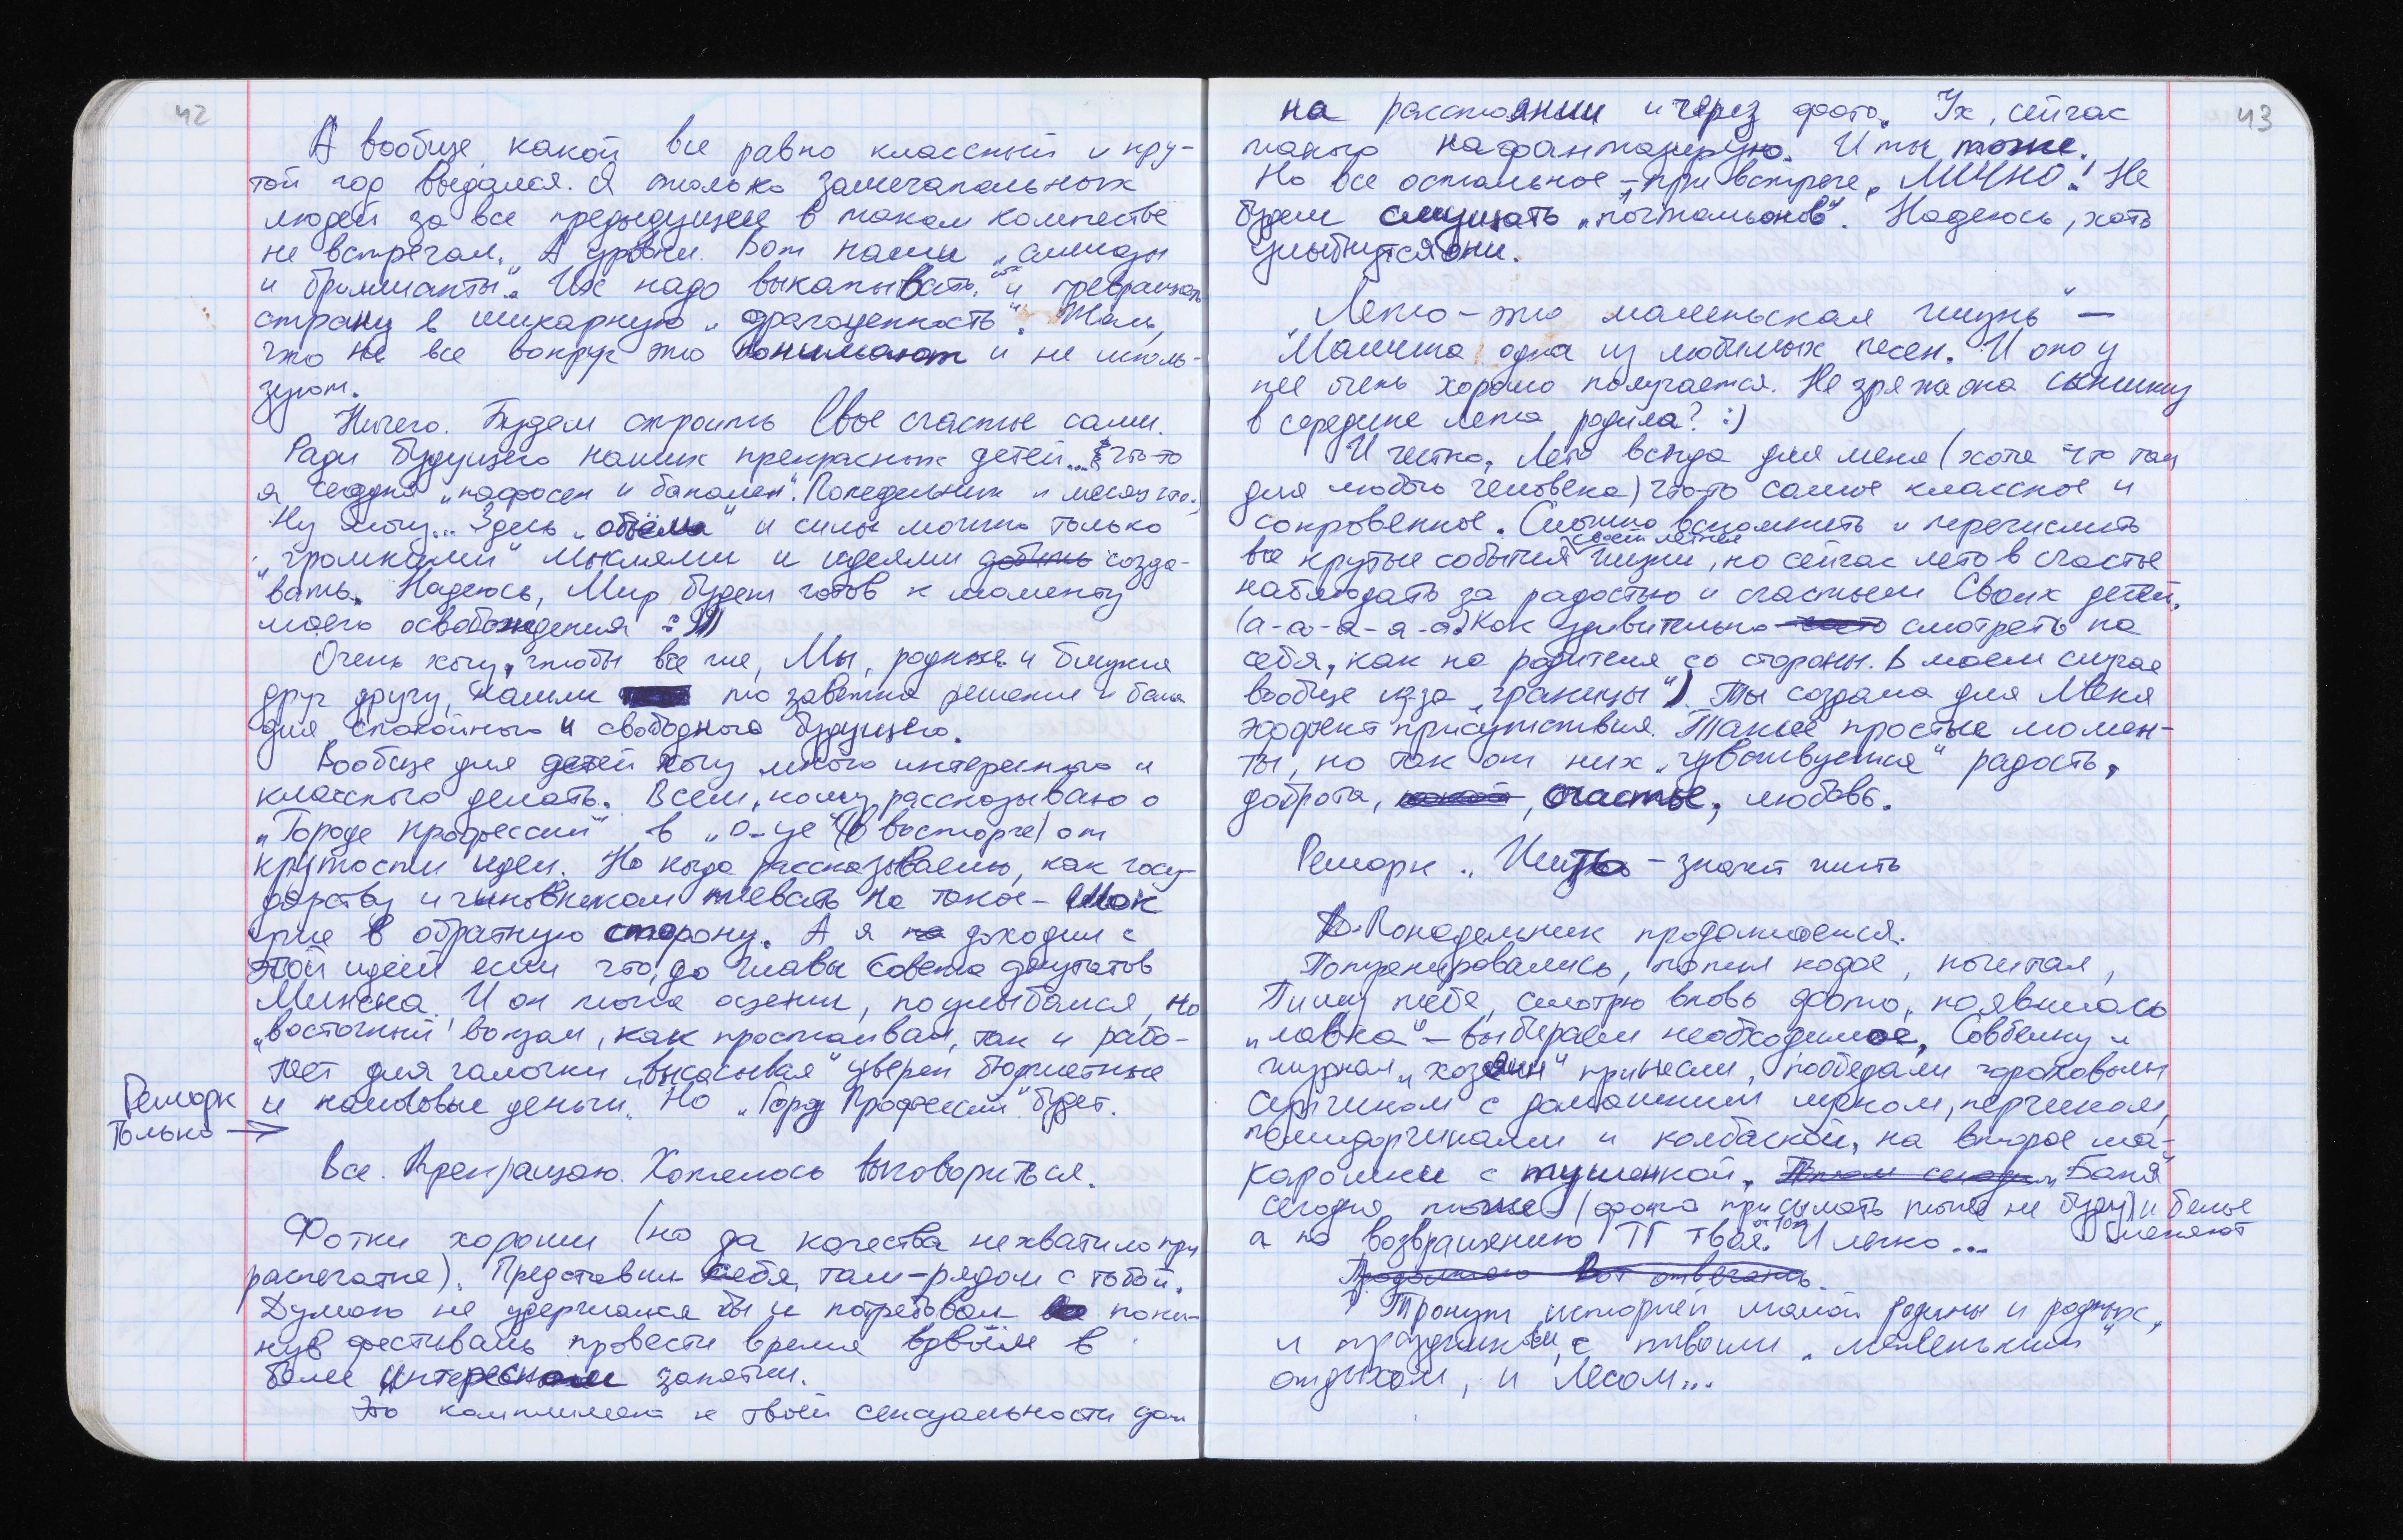 42
А вообще, какой все равно классный и кру-
той год выдался. Я только замечательных
людей за все предыдущее в таком количестве
не встречал. А уровни. Вот наши „алмазы
и бриллианты". Их надо выкапывать и превращать
страну в шикарную „драгоценность". Жаль,
что не все вокруг это понимают и не исполь-
зуют.
Ничего. Будем строить Свое счастье сами.
Ради будущего наших прекрасных детей... Что-то
я сегодня „пафосен и банален". Понедельник и
Ну могу... Здесь „объёма" и силы можно только
„громкими" мыслями и идеями добыть созда-
вать. Надеюсь, Мир будет готов к моменту
моего освобождения :)))
Очень хочу, чтобы все же, Мы, родные и близкие
друг другу, нашли то заветное решение и
для спокойного и свободного будущего.
Вообще для детей хочу много интересного и
классного делать. Всем, кому рассказываю о
„Городе Профессий" в „О-це" (в восторге) от
крутости идеи. Но когда рассказываем, как госу-
дарству и чиновникам плевать на такое – Шок
уже в обратную сторону. А я на доходил с
этой идеей если что, до главы Совета депутатов
Минска. И он тоже оценил, поулыбался, но
„восточный" вокзал, как простаивал, так и рабо-
тает для галочки „высасывая" бюджетные
и налоговые деньги. Но „Город Профессий" будет.
Ремарк
только →
Все. Прекращаю. Хотелось выговориться.
Фотки хороши (но да качества не хватило при
распечатке). Представил себя, там – рядом с тобой.
Думаю не удержался бы и потребовал поки-
нув фестиваль провести время вдвоём в
более интересном занятии.
Это комплимент к твоей сексуальности даж
43
на расстоянии и через фото. Ух, сейчас
такого нафантазирую. И ты тоже.
Но все остальное – при встрече, ЛИЧНО! Не
будем смущать „почтальонов". Надеюсь, хоть
улыбнутся они.
„Лето – это маленькая жизнь" –
Малыша одна из любимых песен. И оно у
нее очень хорошо получается. Не зря же она сынишку
в середине лета родила? :)
И честно, Лето всегда для меня (хотя что там
для любого человека) что-то самое классное и
сокровенное. Сложно вспомнить и перечислить
все крутые события своей летней жизни, но сейчас лето в счастье
наблюдать за радостью и счастьем Своих детей.
(а-а-а-а-а. Как удивительно часто смотреть на
себя, как на родителя со стороны. В моем случае
вообще из-за „границы"). Ты создала для Меня
эффект присутствия. Такие простые момен-
ты, но так от них „чувствуется" радость,
доброта, какой, счастье, любовь.
Ремарк „Жить – значит жить
Понедельник продолжается.
Потренировались, попил кофе, почитал,
Пишу тебе, смотрю вновь фото, появилась
„лавка" – выбираем необходимое, Совбелку и
журнал „хозяин" принесли, пообедали гороховым
супчиком с домашним луком, перчиком,
помидорчиками и колбаской, на второе ма-
карошки с тушенкой. Баня
сегодня тоже – (фото присылать тоже не буду) и белье
меняют
а по возвращению ТГ твоя. И легко...
Продолжаю вот отвечать.
Тронут историей малой родины и родных,
и праздником, с твоим „маленьким"
отдыхом, и Лесом...